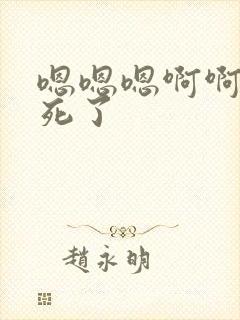 嗯嗯嗯啊啊
死了
趙永明